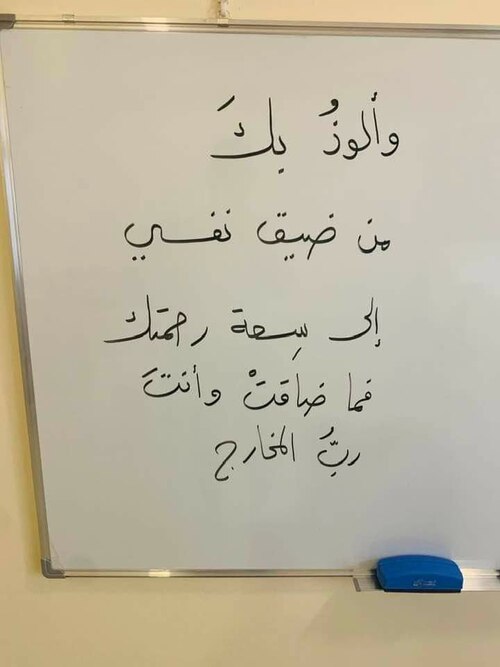 وألوذُ بكَ
من ضيق نفسي
إلى سِعة رحمتك
فما ضاقتْ وأنتَ
ربُّ المخارج